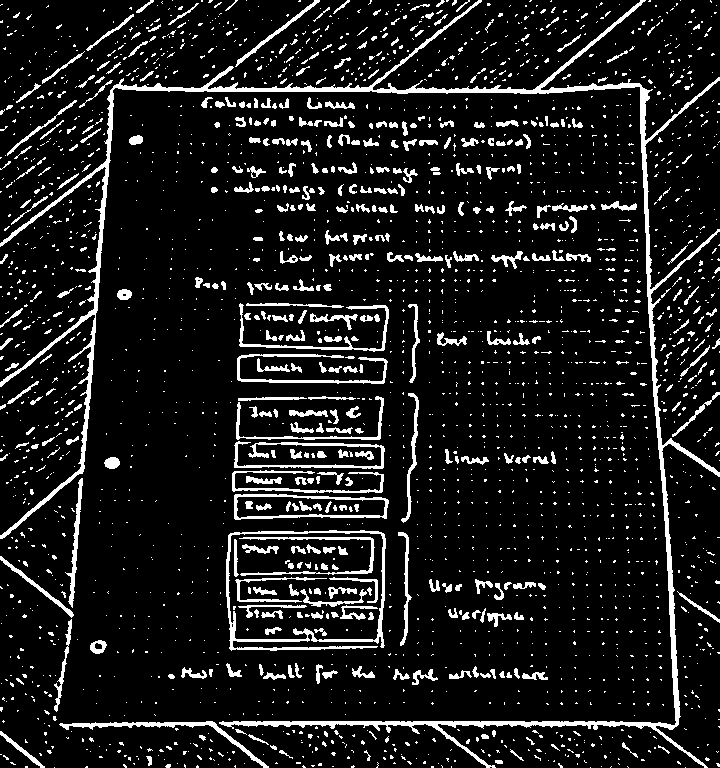 Embedded Linux
• Store "kernel's image" in a non-volatile
memory (flash eprom / SD-card)
• size of kernel image = footprint
• advantages
- work without MMU ( for processors
MMU)
- Low footprint
- Low power consumption applications
Boot procedure
Extract / Decompress
kernel image
Launch kernel
Boot loader
Init memory &
Hardware
Init
Mount root FS
Run /sbin/init
Linux kernel
Start network
service
login prompt
Start
or apps
User programs
Userspace
• Must be built for the right architecture